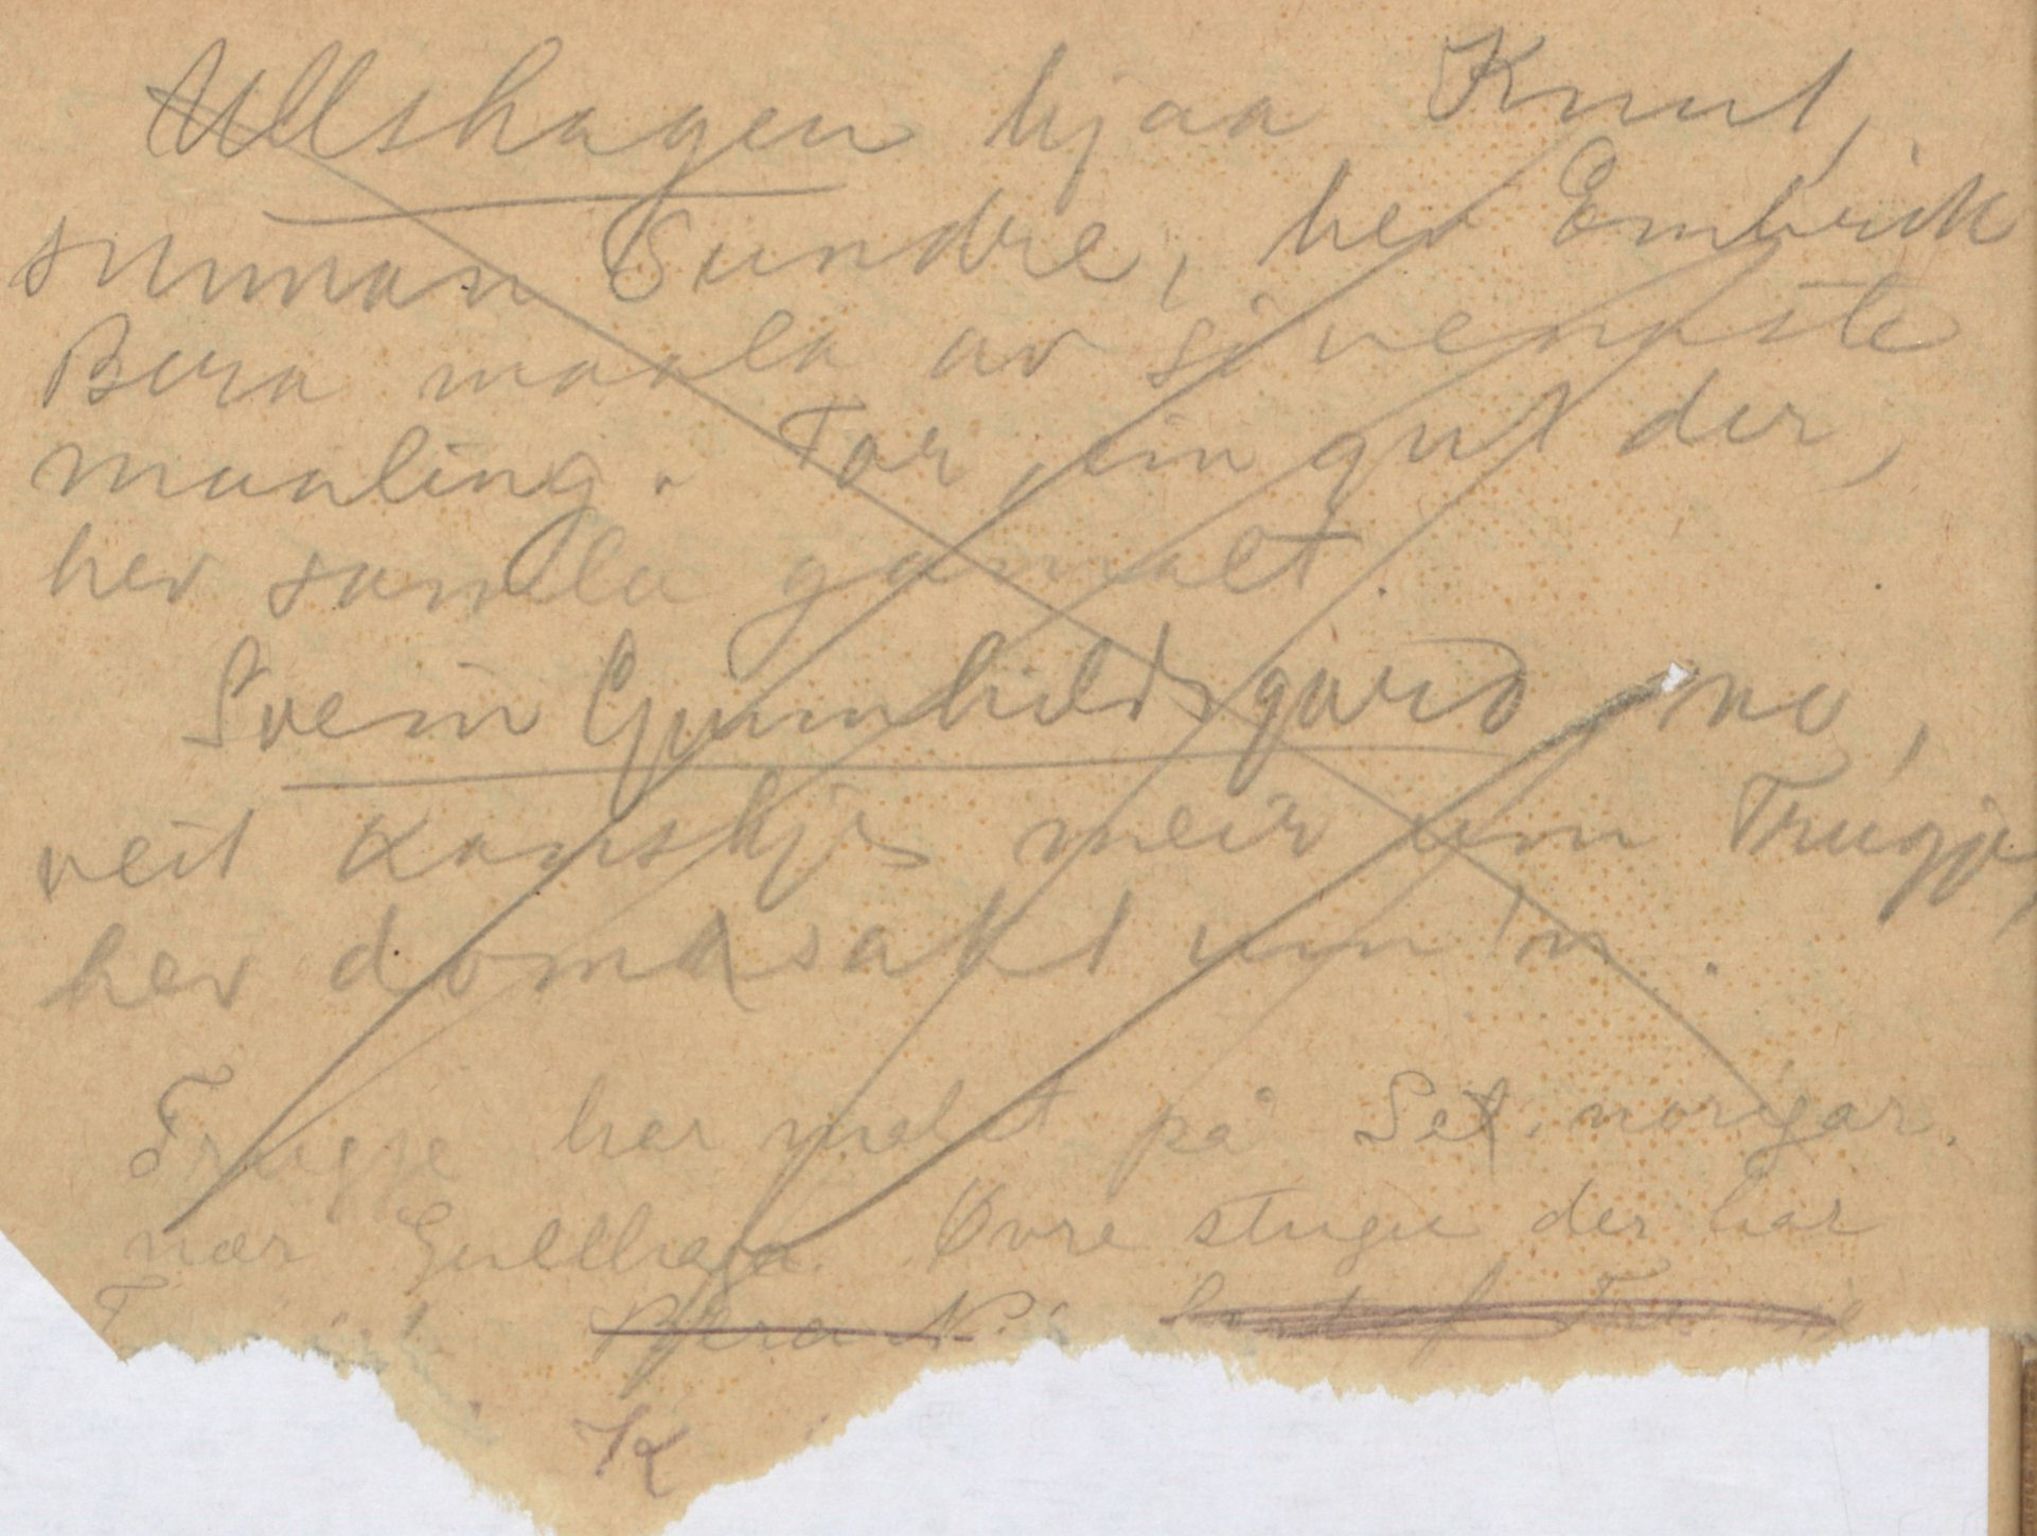 Ullshagen hjaa Knut,
sunnan Sundre, hev Embrik
Bæra maala av sjvenaste
maaling. Tor, ein gut der,
hev samla gamalt.
Svein Gunnhildsgard no,
veit kanskje meir um Trugje,
hev domsakt um 'n.
Trugje har malt på Set. norigar.
nær Gullhaga. Øvre stugu der har
K